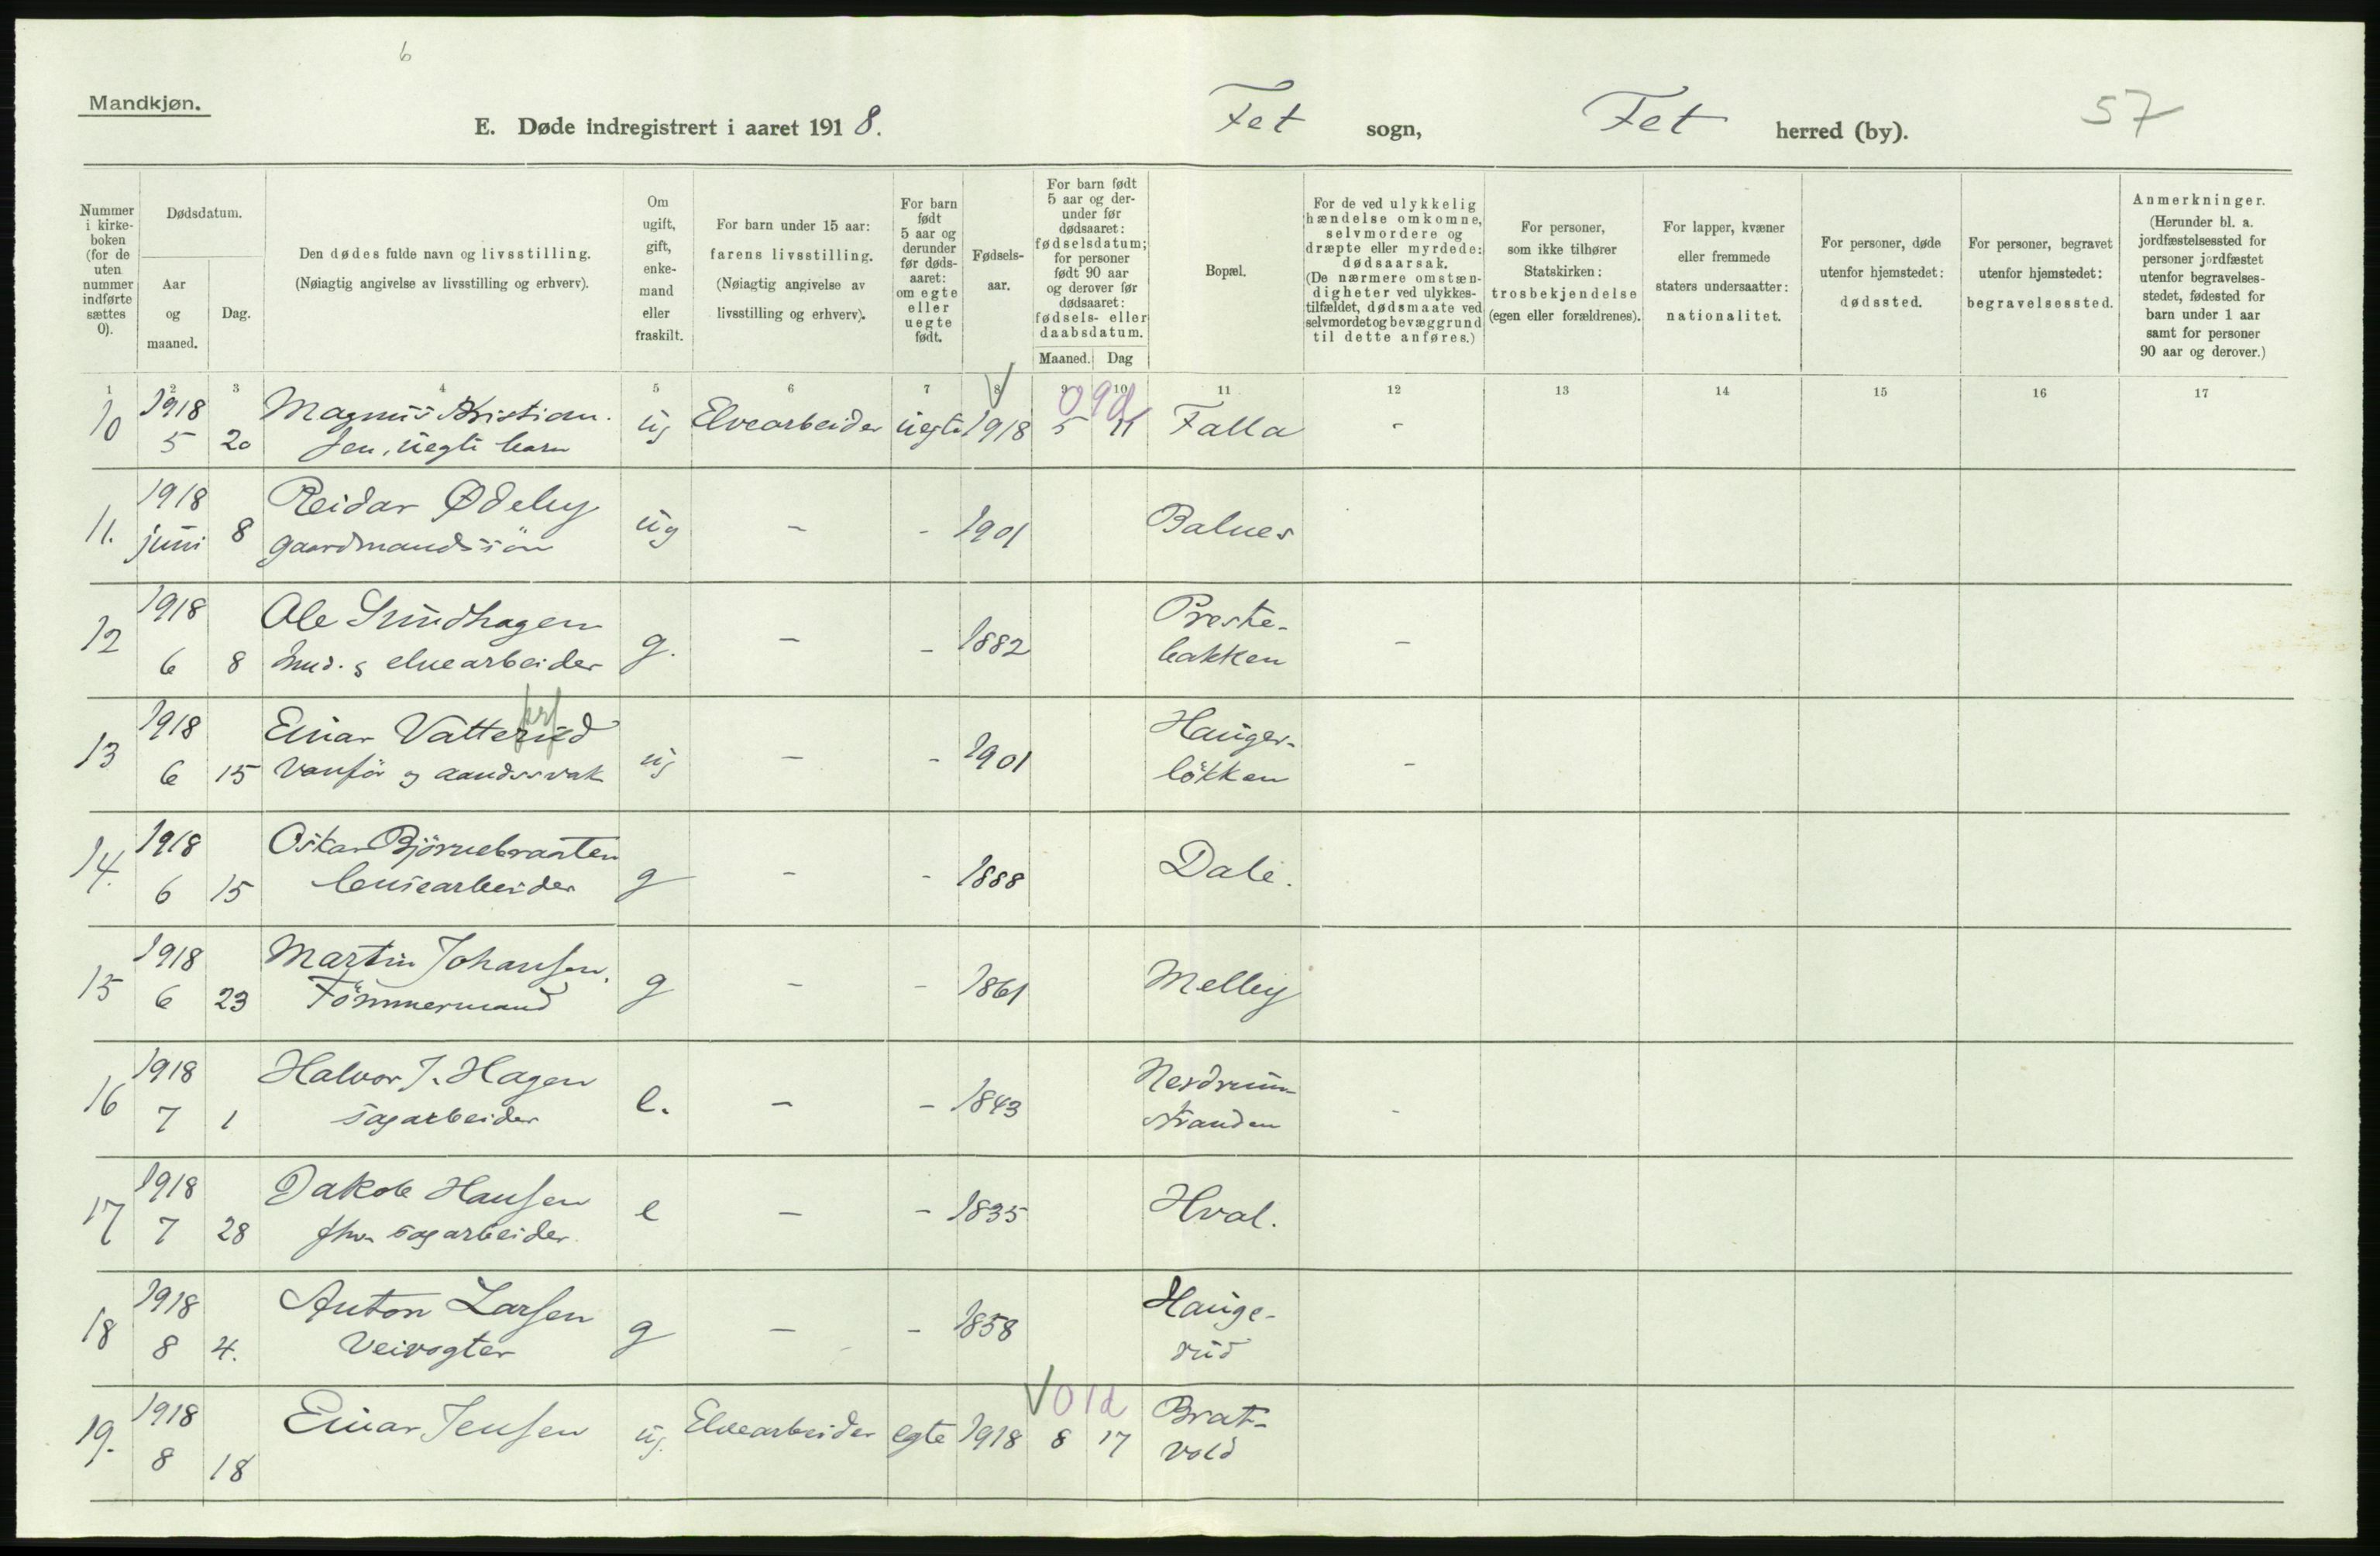 6
Mandkjøn.
E. Døde indregistrert i aaret 1918. Fet sogn, Fet herred (by). 57
Nummer i kirke-boken (for de uten nummer indførte sættes 0).
Dødsdatum.
Aar og maaned.
Dag.
Den dødes fulde navn og livsstilling.
(Nøiagtig angivelse av livsstilling og erhverv).
Om ugift, gift, enke-mand eller fraskilt.
For barn under 15 aar:
farens livsstilling.
(Nøiagtig angivelse av
livsstilling og erhverv).
For barn født 5 aar og derunder før døds-aaret: om egte eller uegte født.
Fødsels-aar.
For barn født 5 aar og der-under før dødsaaret: fødselsdatum; for personer født 90 aar og derover før dødsaaret: fødsels- eller daabsdatum.
Maaned. Dag
Bopæl.
For de ved ulykkelig hændelse omkomne, selvmordere og dræpte eller myrdede: dødsaarsak. (De nærmere omstæn-digheter ved ulykkes-tilfældet, dødsmaate ved selvmordet og bevæggrund til dette anføres.)
For personer, som ikke tilhører Statskirken: trosbekjendelse (egen eller forældrenes).
For lapper, kvæner eller fremmede staters undersaatter: nationalitet.
For personer, døde utenfor hjemstedet: dødssted.
For personer, begravet utenfor hjemstedet: begravelsessted.
Anmerkninger.
(Herunder bl. a. jordfæstelsessted for personer jordfæstet utenfor begravelses-stedet, fødested for barn under 1 aar samt for personer 90 aar og derover.)
1 2 3 4 5 6 7 8 9 10 11 12 13 14 15 16 17
10 1918 Magnus Kristian- ug Elvearbeider uegte 1918 5 11 Falla -
09d
5 20 sen, uegte barn
11. 1918 Reidar Ødeby ug - - 1901 Balnes
juni 8 gaardmandssön
12 1918 Ole Sundhagen g. - - 1882 Preste- -
6 8 hmd. g elvearbeider bakken
13 1918 Einar Vatterud ug - - 1901 Hauger- -
6 15 Vanför og aandssvak lökken
14. 1918 Oskar Björnebraaten g - - 1888 Dale.
6 15 lensearbeider
15 1918 Martin Johansen. g - - 1861 Melby
6 23 Tömmermand
16 1918 Halvor J. Hagen e. - - 1843 Nerdrum- -
7 1 sagarbeider stranden
17 1918 Jakob Hansen e - - 1835 Hval.
7 28 fhv. sagarbeider.
18 1918 Anton Larsen g - - 1858 Hauge-
8 4. Veivogter rud
01d
19. 1918 Einar Jensen ug. Elvearbeider egte 1918 8 17 Brat-
8 18 vold